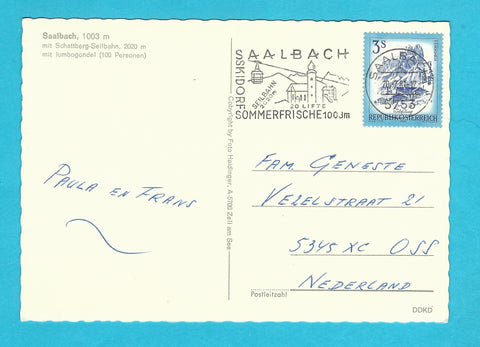 Saalbach, 1003 m
mit Schattberg-Seilbahn, 2020 m
mit Jumbogondel (100 Personen)
SAALBACH
SKIDORF
SEILBAHN
20 LIFTE
SOMMERFRISCHE 1003m
3S
SAALBACH
5753
REPUBLIK ÖSTERREICH
Copyright by Foto Haidinger, A-5700 Zell am See
PAULA EN FRANS
FAM. GENESTE
VEZELSTRAAT 21
5345 XC OSS
NEDERLAND
Postleitzahl
DDKD